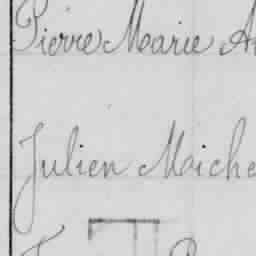 Pierre Marie A
Julien Miche